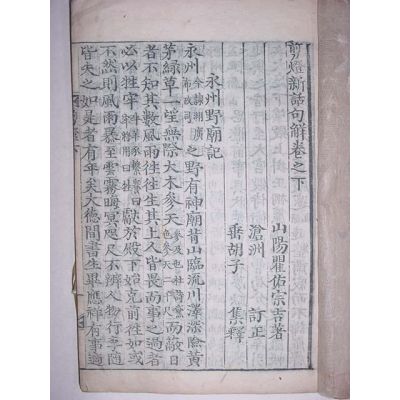 剪燈新話句解卷之下
山陽瞿佑宗吉著
滄洲 訂正
垂胡子 集釋
永州野廟記
永州今隸湖廣布政司之野有神廟背山臨流川澤深險黃
茅綠草一望無際大木參天參及也杜詩黛色參天二千尺而蔽日
者不知其數風雨往往生其上人皆畏而事之過者
必以牲牢獻於殿下始克前往如或
不然則風雨暴至雲霧晦冥咫尺不辨人物行李隨
皆失之如是者有年矣大德間書生畢應祥有事過